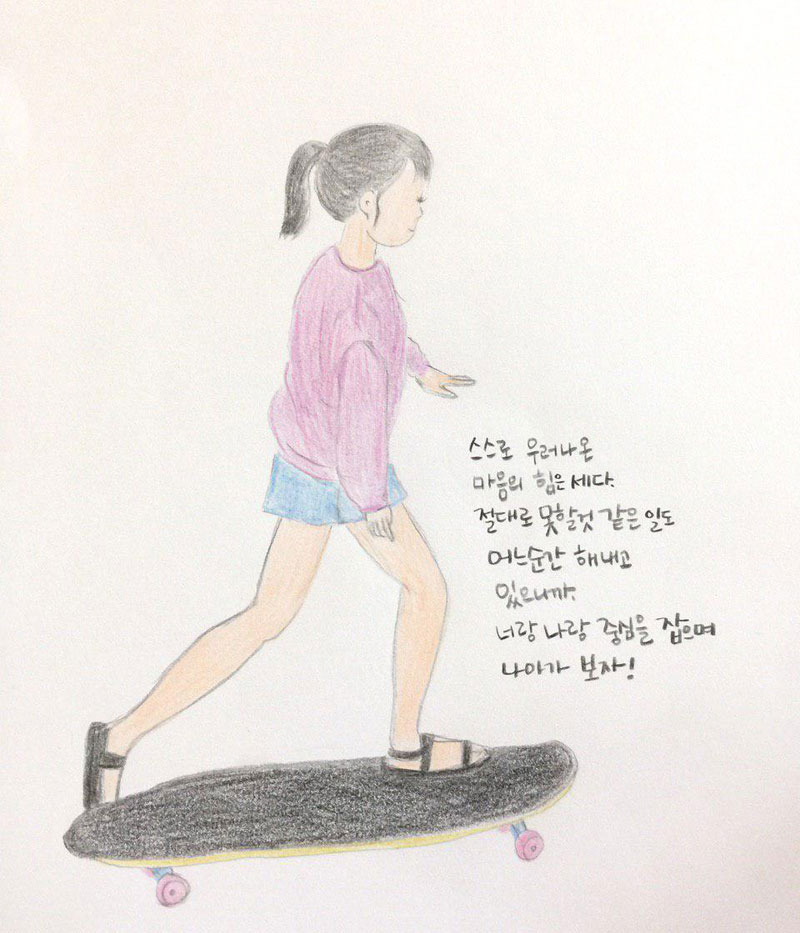 스스로 우러나온
마음의 힘은 세다.
절대로 못할것 같은 일도
어느순간 해내고
있으니까.
너랑 나랑 중심을 잡으며
나아가 보자!